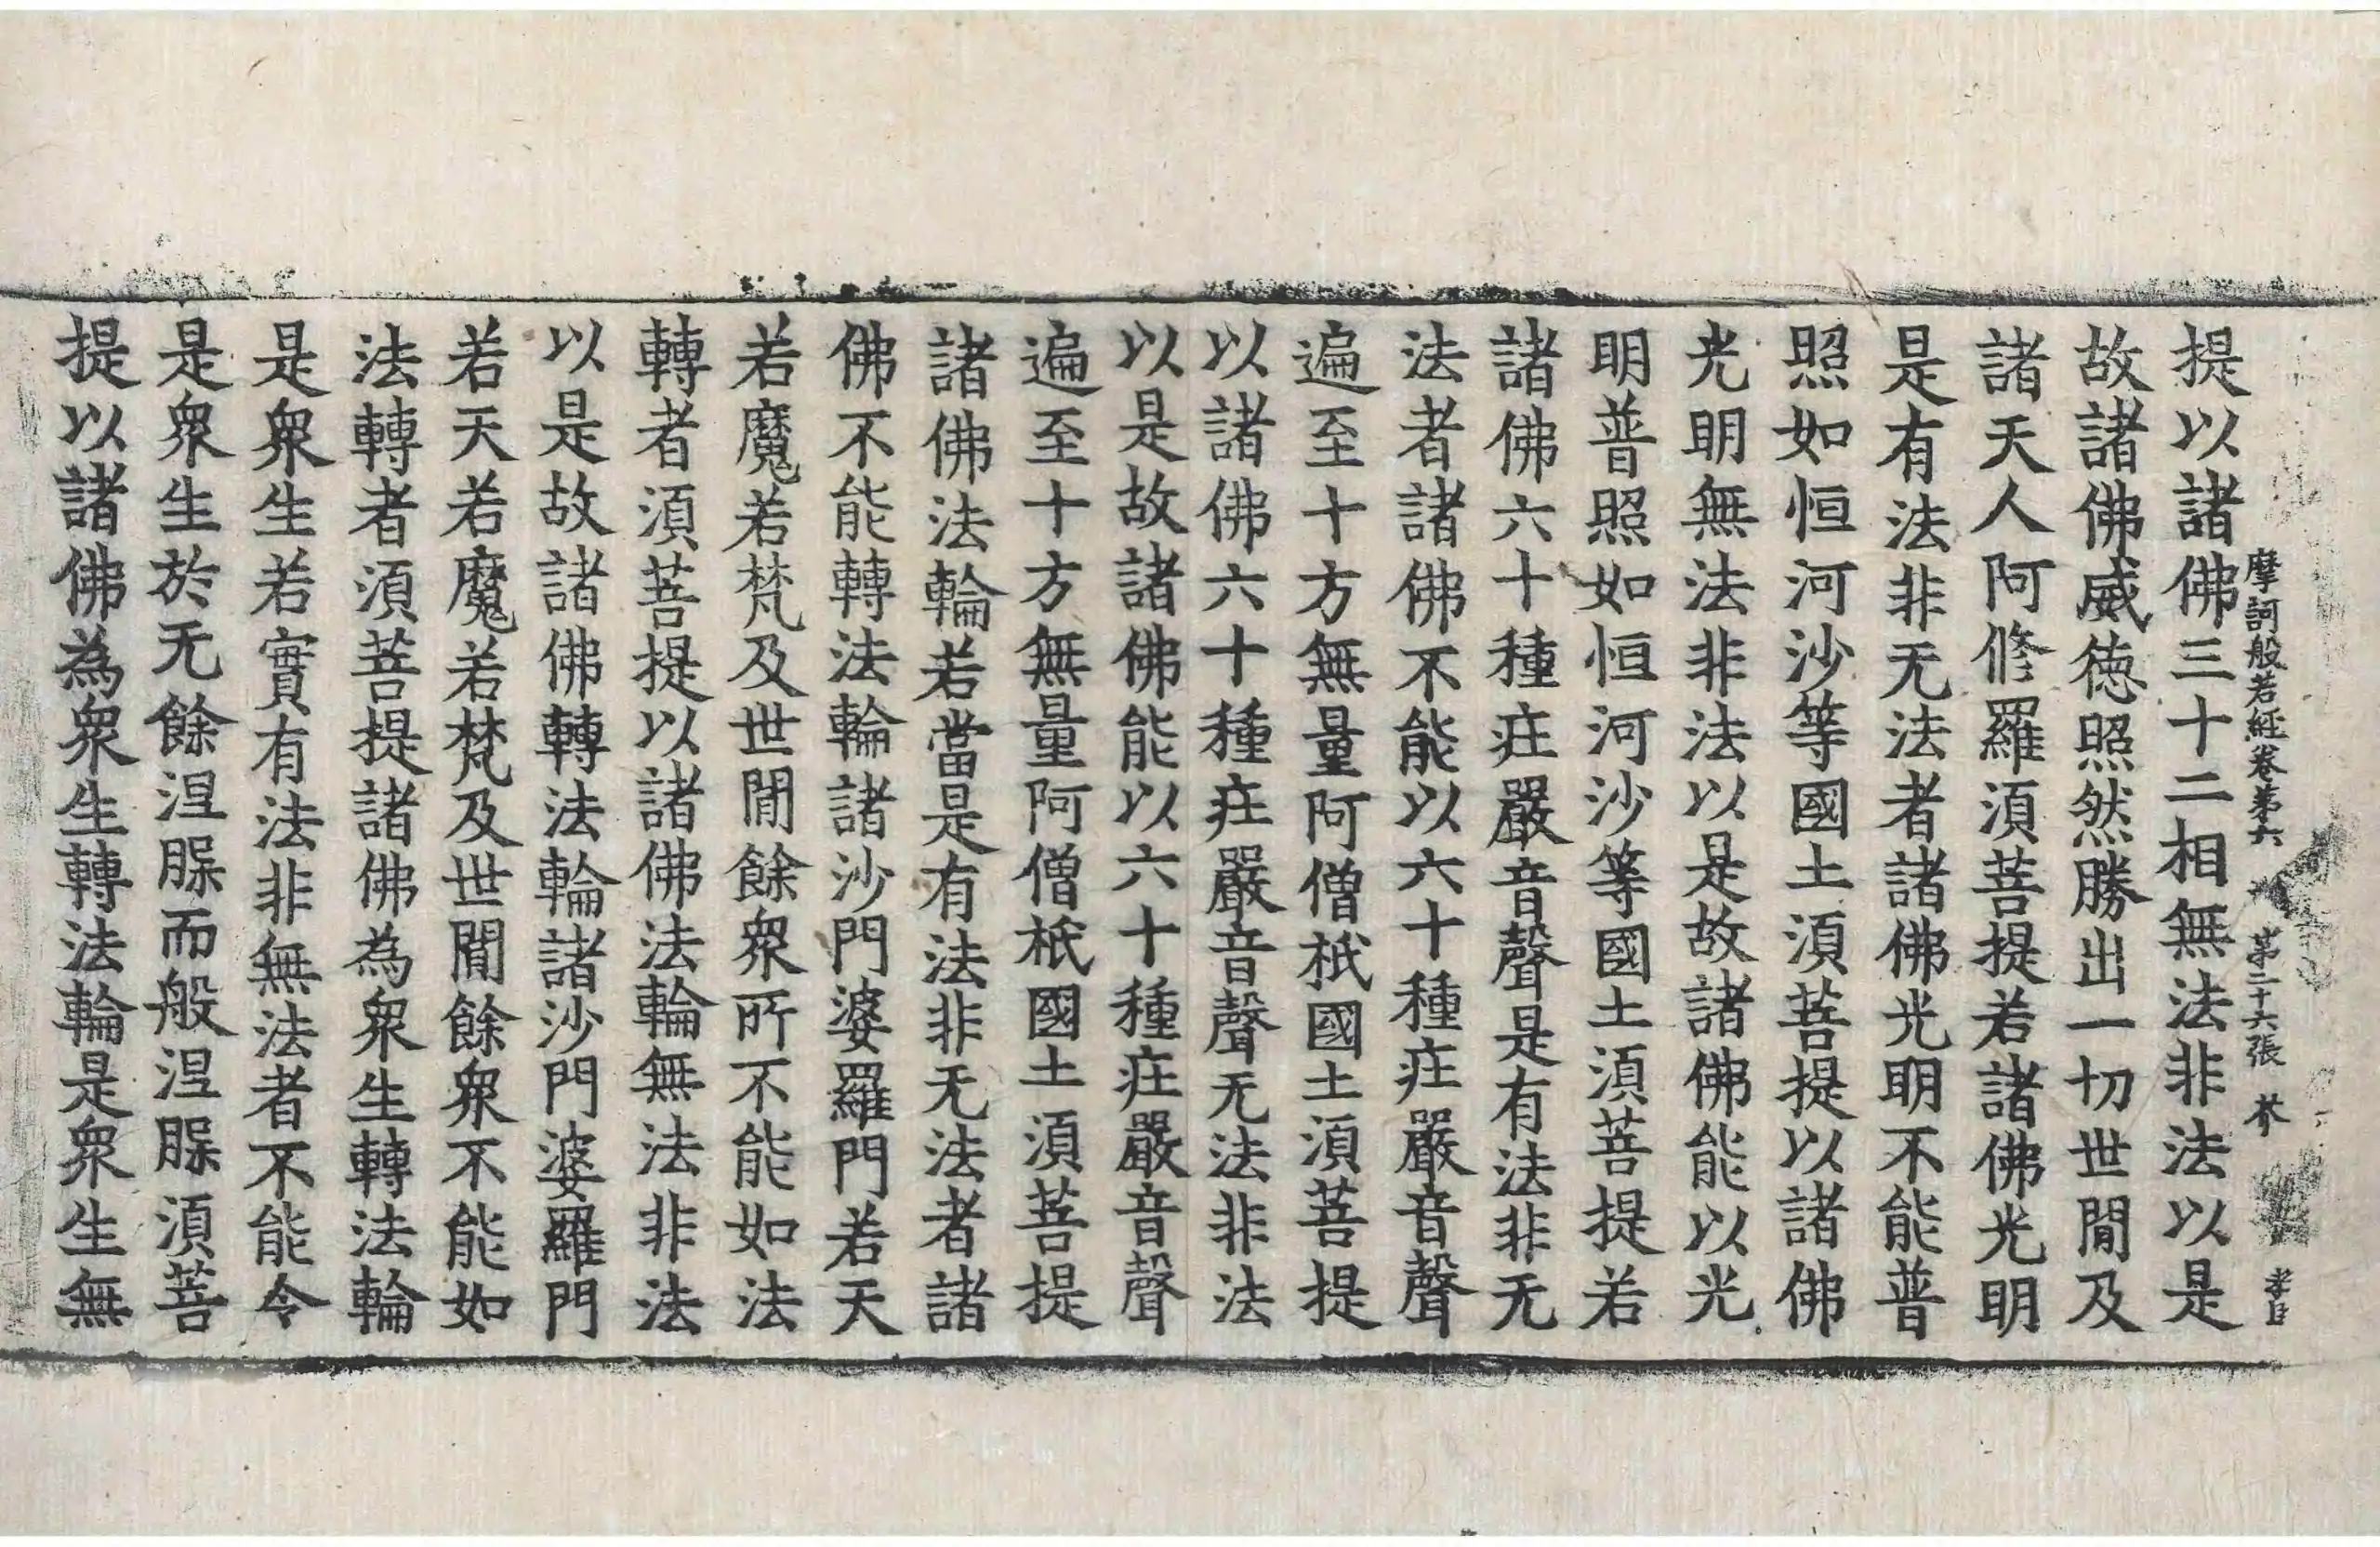 摩訶般若經卷第六 第二十六張 芥
提以諸佛三十二相無法非法以是
故諸佛威德照然勝出一切世閒及
諸天人阿脩羅湏菩提若諸佛光明
是有法非无法者諸佛光明不能普
照如恒河沙等國土湏菩提以諸佛
光明無法非法以是故諸佛能以光
明普照如恒河沙等國土湏菩提若
諸佛六十種疘嚴音聲是有法非无
法者諸佛不能以六十種疘嚴音聲
遍至十方無量阿僧祇國土湏菩提
以諸佛六十種疘嚴音聲无法非法
以是故諸佛能以六十種疘嚴音聲
遍至十方無量阿僧祇國土湏菩提
諸佛法輪若當是有法非无法者諸
佛不能轉法輪諸沙門婆羅門若天
若魔若梵及世閒餘衆所不能如法
轉者湏菩提以諸佛法輪無法非法
以是故諸佛轉法輪諸沙門婆羅門
若天若魔若梵及世閒餘衆不能如
法轉者湏菩提諸佛為衆生轉法輪
是衆生若實有法非無法者不能令
是衆生於无餘涅槃而般涅槃湏菩
提以諸佛為衆生轉法輪是衆生無